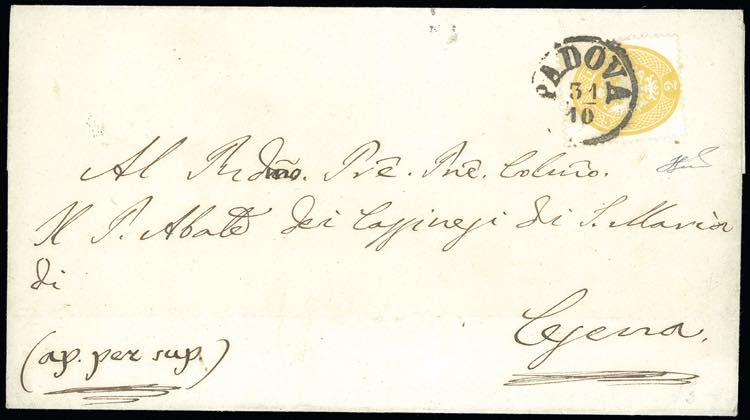 PADOVA
31
10
2
Al Rdmo. Prē. Pnē. Colmo.
Il P. Abate dei Cassinesi di S. Maria
di
Cesena.
(ap. per sup.)